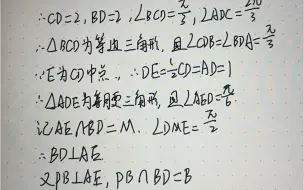 ∵CD=2, BD=2, ∠BCD=π/3, ∠ADC=2π/3
∴△BCD为等边三角形, 且∠CDB=∠BDA=π/3
∵E为CD中点, ∴DE=½CD=AD=1
∴△ADE为等腰三角形, 且∠AED=π/6
记AE∩BD=M. ∠DME=π/2
∴BD⊥AE
又PB⊥AE, PB∩BD=B